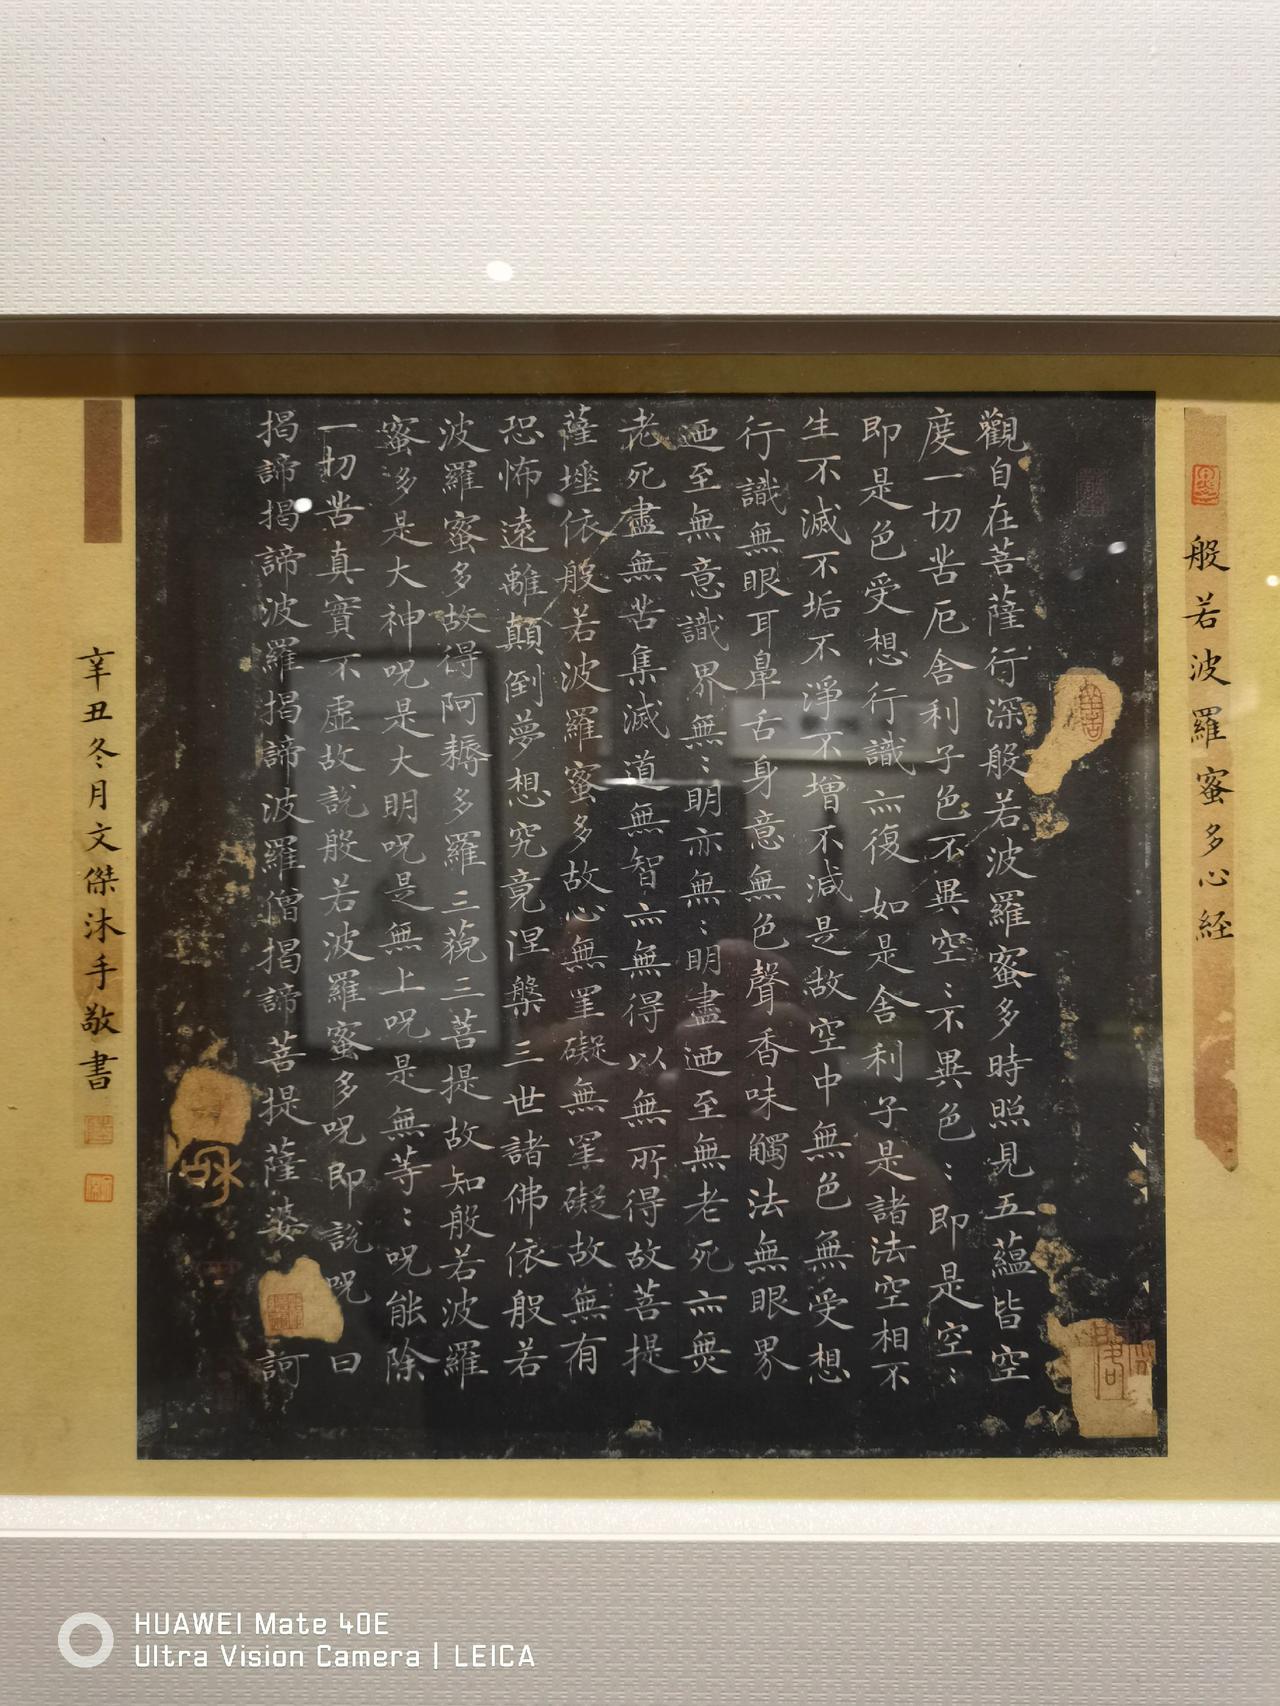 般若波羅蜜多心経
觀自在菩薩行深般若波羅蜜多時照見五蘊皆空
度一切苦厄舍利子色不異空:不異色:即是空:
即是色受想行識亦復如是舍利子是諸法空相不
生不滅不垢不淨不增不減是故空中無色無受想
行識無眼耳鼻舌身意無色聲香味觸法無眼界
迺至無意識界無:明亦無:明盡迺至無老死亦無
老死盡無苦集滅道無智亦無得以無所得故菩提
薩埵依般若波羅蜜多故心無罣礙無罣礙故無有
恐怖遠離顛倒夢想究竟涅槃三世諸佛依般若
波羅蜜多故得阿耨多羅三藐三菩提故知般若波羅
蜜多是大神呪是大明呪是無上呪是無等:呪能除
一切苦真實不虛故說般若波羅蜜多呪即說呪曰
揭諦揭諦波羅揭諦波羅僧揭諦菩提薩婆訶
辛丑冬月文傑沐手敬書
HUAWEI Mate 40E
Ultra Vision Camera | LEICA